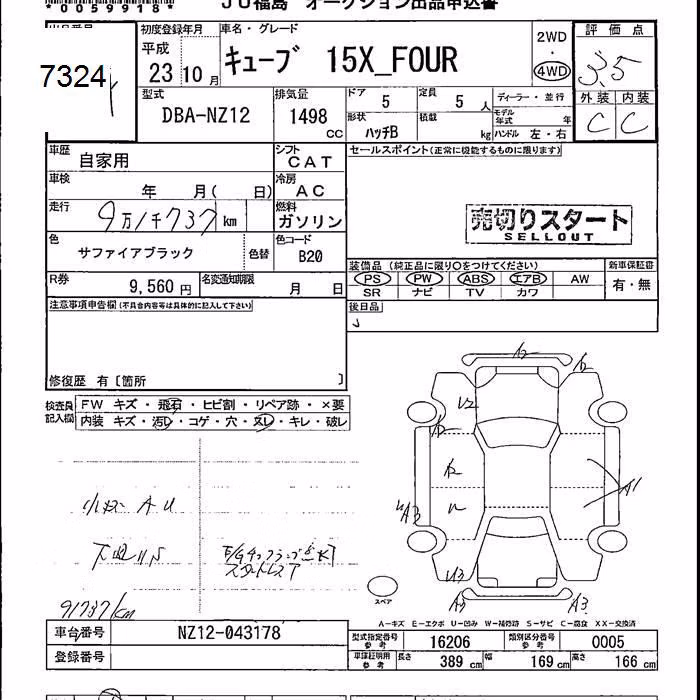 *0059918*
JU福島 オークション出品申込書
7324
初度登録年月 平成 23 10 月
車名・グレード キューブ 15X_FOUR
2WD
4WD
評価点 3.5
型式 DBA-NZ12
排気量 1498 CC
ドア 5
定員 5 人
形状 ハッチB
積載 kg
ディーラー・並行
モデル年式 年
ハンドル 左・右
外装 内装
C C
車歴 自家用
シフト CAT
セールスポイント(正常に機能するものに限ります)
車検 年 月( 日)
冷房 AC
走行 9万1千737 km
燃料 ガソリン
売切りスタート
SELLOUT
色 サファイアブラック
色替
色コード B20
R券 9,560 円
名変通知期限 月 日
装備品(純正品に限り○をつけてください)
新車保証書
PS PW ABS エアB AW
SR ナビ TV カワ
有・無
注意事項申告欄(不具合内容等は具体的に記入して下さい)
後日品
修復歴 有〔箇所 〕
検査員記入欄
FW キズ・飛石・ヒビ割・リペア跡・×要
内装 キズ・汚レ・コゲ・穴・スレ・キレ・破レ
小キズ A U
下廻りS
E/Gチェックランプ点灯
スタートレスT
91737km
U2
A1
A3
U3
A3
A3
スペア
A-キズ E-エクボ U-凹み W-補修跡 S-サビ C-腐食 XX-交換済
車台番号 NZ12-043178
登録番号
型式指定番号 参考 16206
類別区分番号 参考 0005
車庫証明用 参考 長さ 389 cm 幅 169 cm 高さ 166 cm